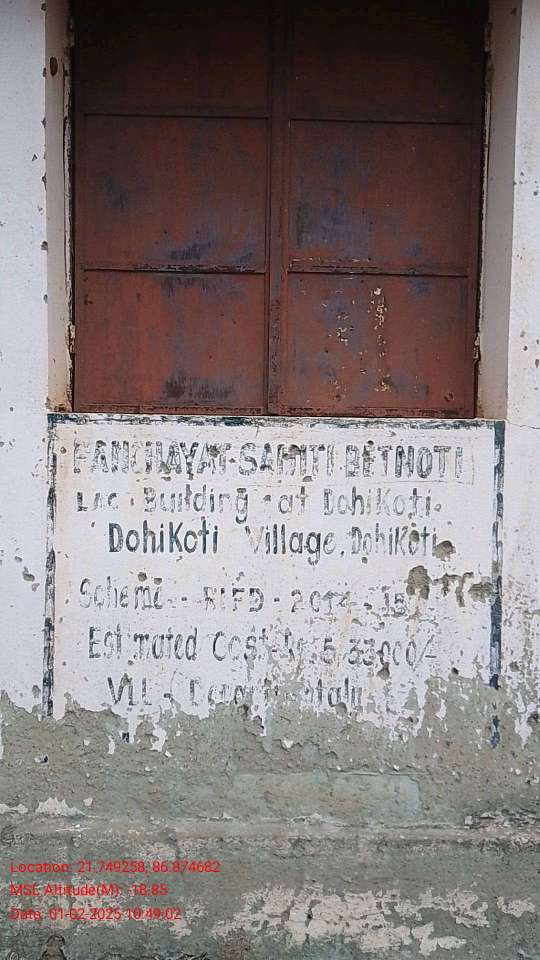 PANCHAYAT-SAMITI-BETNOTI
LAC Building - at DohiKoti.
DohiKoti Village, DohiKoti
Scheme - RIFD - 2014 - 15
Estimated Cost-Rs 5,33000/-
VLL -
Location: 21.749258, 86.874682
MSL Altitude(M): -18.85
Data: 01-02-2025 10:49:02